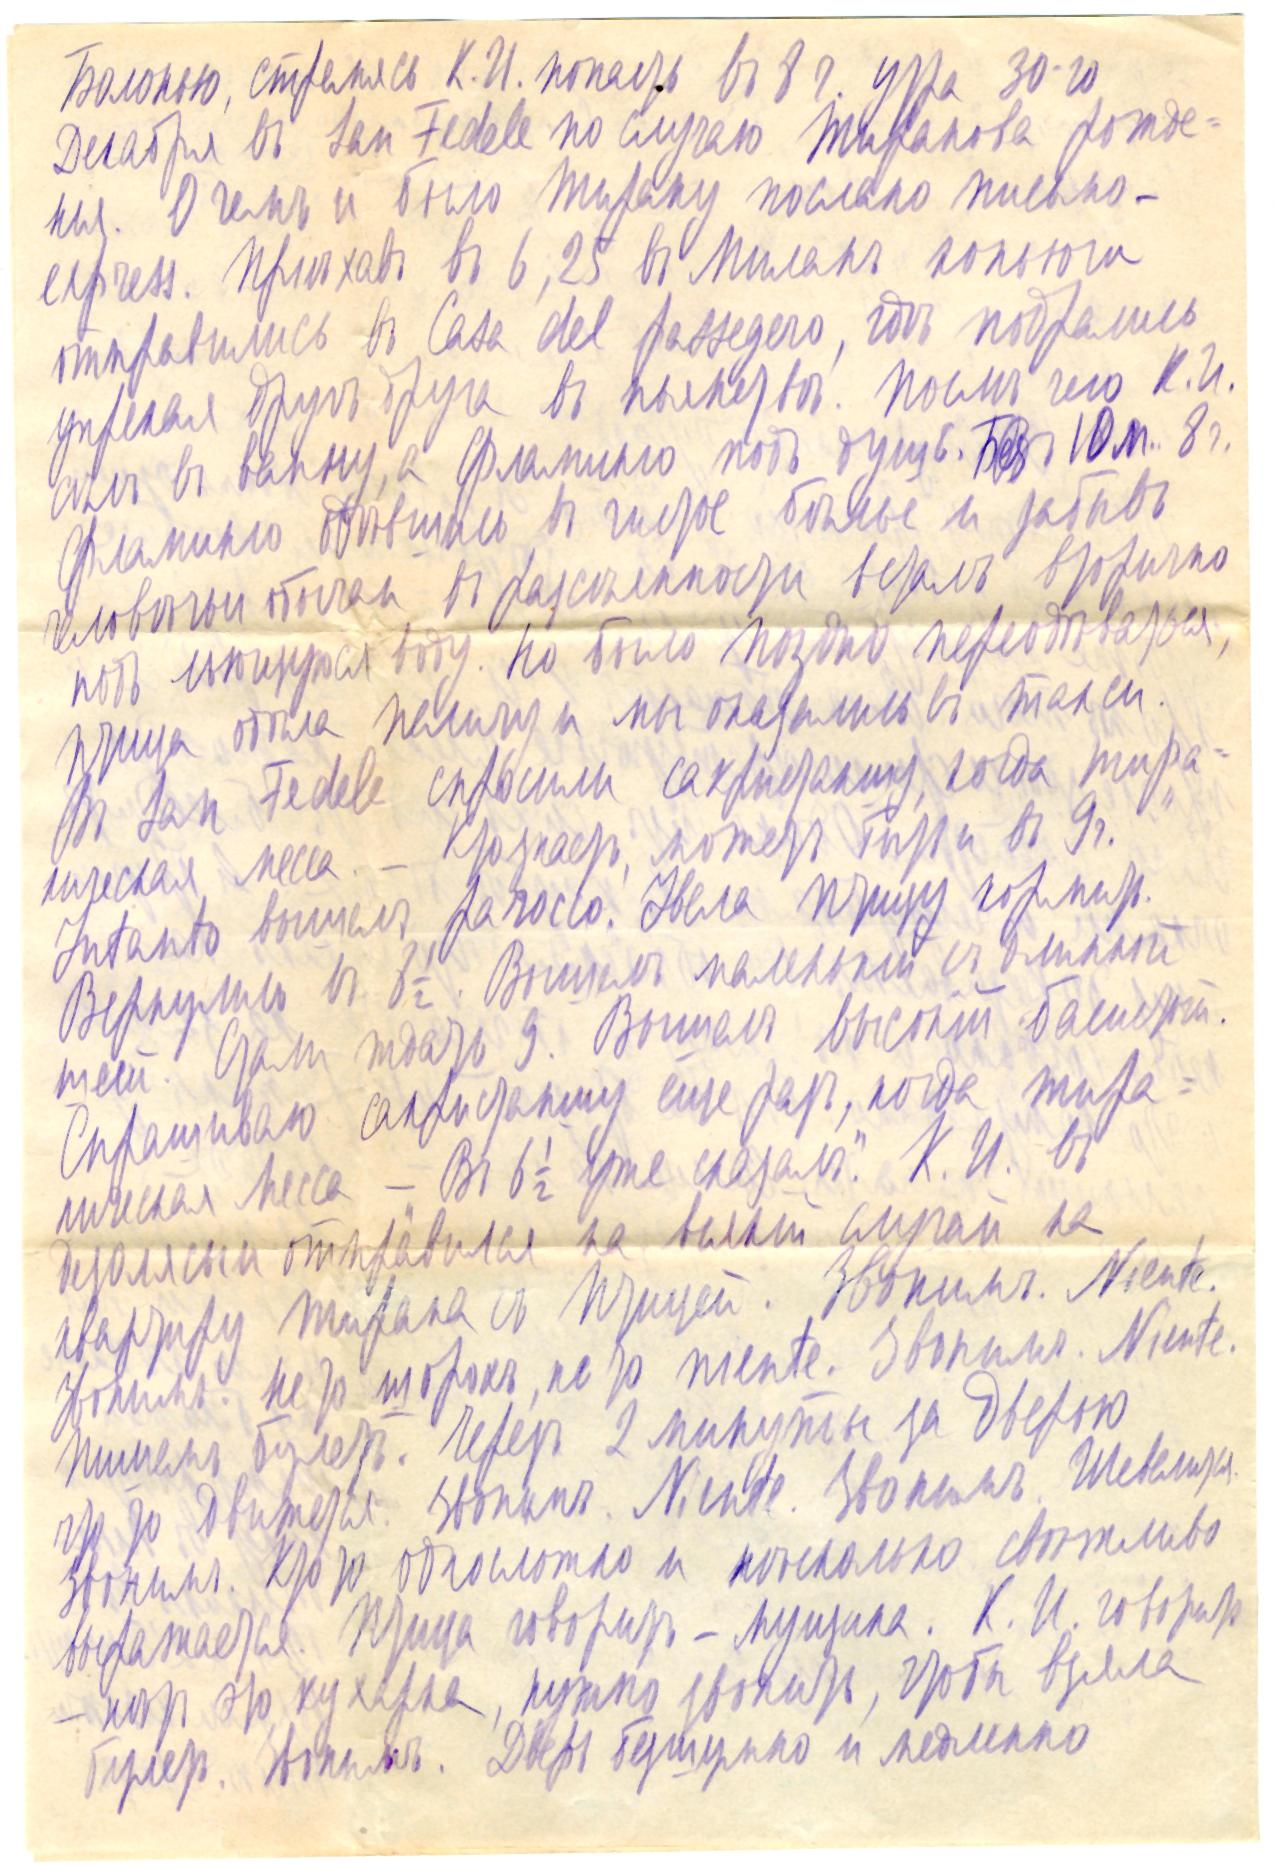 Болонью, стремясь К.И. попасть въ 8 г. утра 30-го
Декабря въ San Fedele по случаю Тиранова рожде=
нія. О чемъ и было Тирану послано письмо-
express. Пріѣхавъ въ 6,25 въ Миланъ
отправились въ Casa del passegero, гдѣ подрались
упрекая другъ друга въ пьянствѣ. Послѣ чего К.И.
сѣлъ въ ванну, а Фламинго подъ душъ. Безъ 10 м. 8 г.
Фламинго одѣвшись въ чистое бѣлье и забывъ
человѣчьи обычаи въ разсѣянности всталъ вторично
подъ льющуюся воду. Но было поздно переодѣваться,
птица обсла и мы оказались въ такси.
Въ San Fedele спросили сакристаншу, когда тира=
ническая месса. — Кто знаетъ, можетъ быть и въ 9 г."
Intanto вышелъ рагоссо. Увела птицу кормить.
Вернулись въ 8½. Вышелъ маленькій съ длинной
шеей. Стали ждать 9. Вышелъ высокій басистый.
Спрашиваю сакристаншу еще разъ, когда тира=
ническая месса — "Въ 6½ уже сказалъ". К.И. въ
дезоляціи отправился на всякій случай на
квартиру Тирана съ Птицей. Звонимъ. Niente.
Звонимъ. Не то шорохъ, не то niente. Звонимъ. Niente.
Пишемъ билетъ. Черезъ 2 минуты за дверью
что то движется. Звонимъ. Niente. Звонимъ. Шевелится.
Звонимъ. Кто то односложно и нѣсколько
выражается. Птица говоритъ — мущина. К.И. говоритъ
— нѣтъ это кухарка, нужно звонить, чтобы взяла
билетъ. Звонимъ. Дверь бешумно и медленно